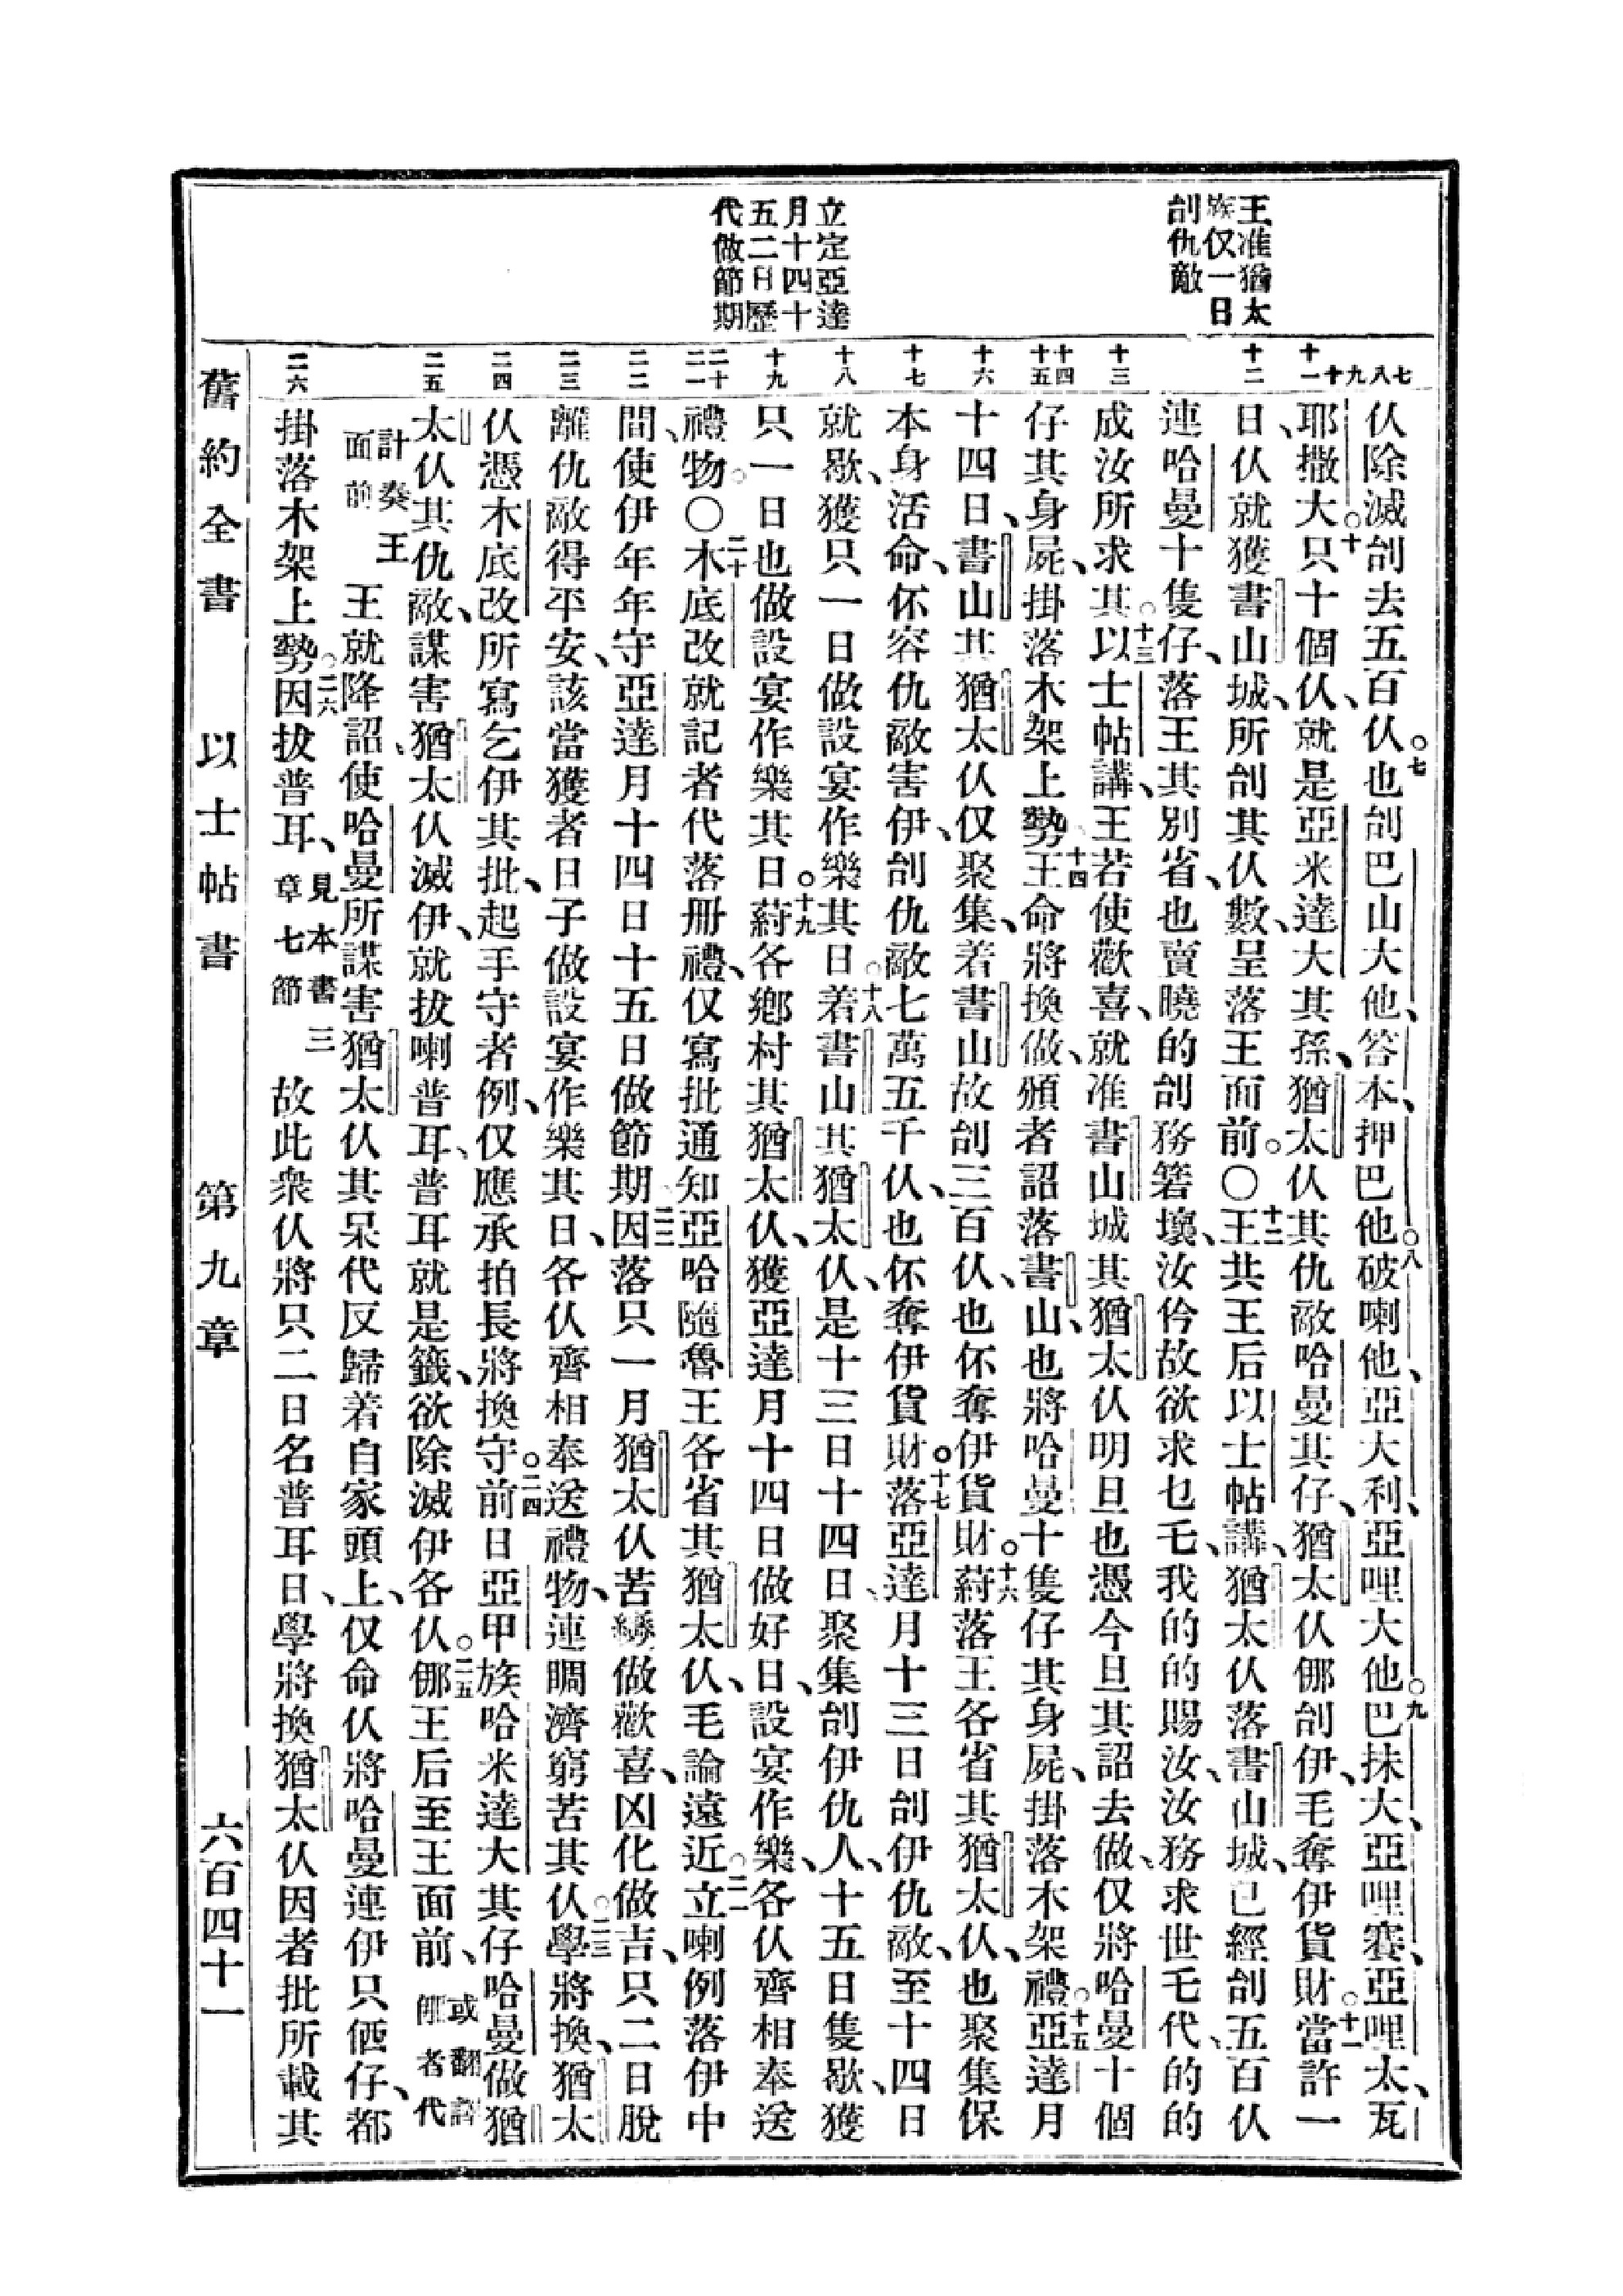 王准猶太
族仅一日
刣仇敵
立定亞達
月十四十
五二日歷
代做節期
七 八 九 十 十一 十二 十三 十四 十五 十六 十七 十八 十九 二十 二一 二二 二三 二四 二五 二六
仫除滅刣去五百仫。七也刣巴山大他、答本、押巴他。八破喇他、亞大利、亞哩大他。九巴抹大、亞哩賽、亞哩太、瓦
耶撒大。十只十個仫、就是亞米達大其孫、猶太仫其仇敵哈曼其仔、猶太仫㑚刣伊、毛奪伊貨財。十一當許一
日、仫就獲書山城、所刣其仫數、呈落王面前。〇十二王共王后以士帖講、猶太仫落書山城、已經刣五百仫
連哈曼十隻仔、落王其別省、也賣曉的刣務箬壞、汝仱故欲求乜乇、我的的賜汝、汝務求世乇、代的的
成汝所求其。十三以士帖講、王若使歡喜、就准書山城其猶太仫、明旦也憑今旦其詔去做、仅將哈曼十個
仔其身屍、掛落木架上勢。十四王命將換做、頒者詔落書山、也將哈曼十隻仔其身屍、掛落木架禮。十五亞達月
十四日、書山其猶太仫仅聚集、着書山故刣三百仫、也伓奪伊貨財。十六葤落王各省其猶太仫、也聚集保
本身活命、伓容仇敵害伊、刣仇敵七萬五千仫、也伓奪伊貨財。十七落亞達月十三日刣伊仇敵、至十四日
就歇、獲只一日做設宴作樂其日。十八着書山其猶太仫、是十三日十四日、聚集刣伊仇人、十五日隻歇、獲
只一日也做設宴作樂其日。十九葤各鄉村其猶太仫、獲亞達月十四日做好日、設宴作樂、各仫齊相奉送
禮物。〇二十木底改就記者代落册禮、仅寫批通知亞哈隨魯王各省其猶太仫、毛論遠近。二一立喇例落伊中
間、使伊年年守亞達月十四日十五日做節期。二二因落只一月猶太仫苦變做歡喜、凶化做吉、只二日脫
離仇敵得平安、該當獲者日子做設宴作樂其日、各仫齊相奉送禮物、連賙濟窮苦其仫。二三學將換、猶太
仫憑木底改所寫乞伊其批、起手守者例、仅應承拍長將換守。二四前日亞甲族哈米達大其仔哈曼做猶
太仫其仇敵、謀害猶太仫滅伊、就拔喇普耳、普耳就是籤、欲除滅伊各仫。二五㑚王后至王面前、或翻譯㑚者代
計奏王面前 王就降詔、使哈曼所謀害猶太仫其呆代反歸着自家頭上、仅命仫將哈曼連伊只𠆧仔、都
掛落木架上勢。二六因拔普耳、見本書三章七節 故此衆仫將只二日名普耳日、學將換猶太仫因者批所載其
舊約全書 以士帖書 第九章 六百四十一